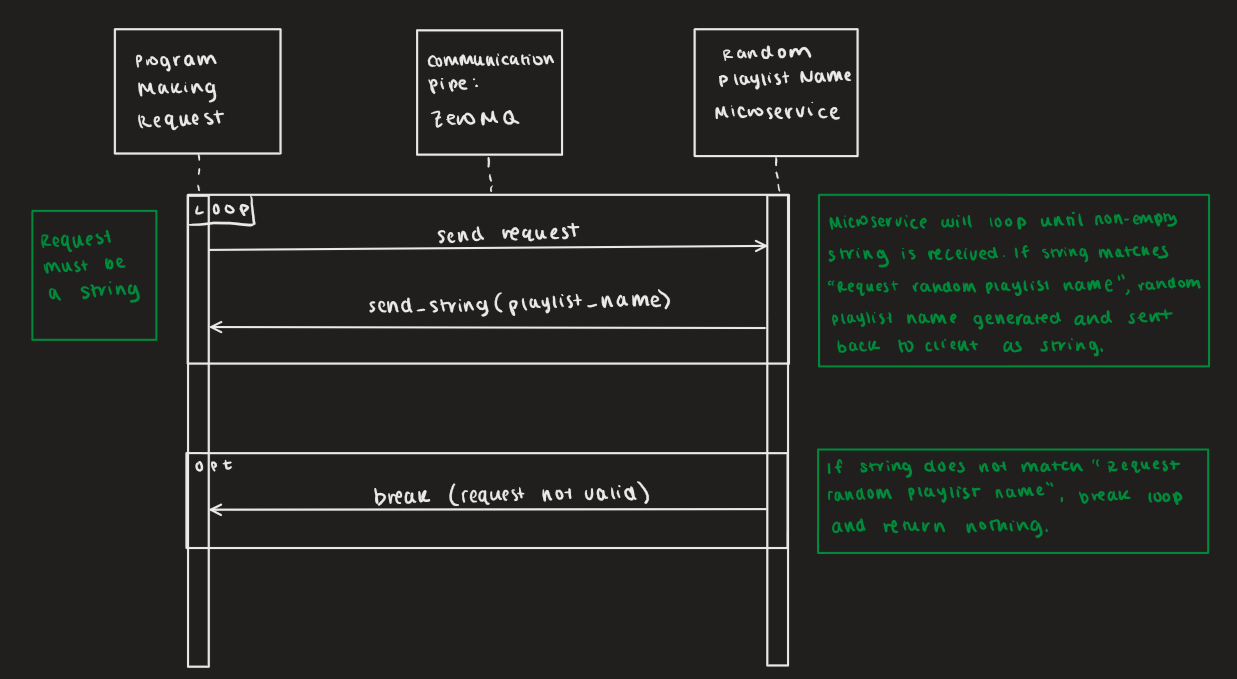 Program
Making
Request
Communication
pipe:
ZeroMQ
Random
Playlist Name
Microservice
Loop
send request
send_string(playlist_name)
Request
must be
a string
Microservice will loop until non-empty
string is received. If string matches
"Request random playlist name", random
playlist name generated and sent
back to client as string.
opt
break (request not valid)
If string does not match "Request
random playlist name", break loop
and return nothing.